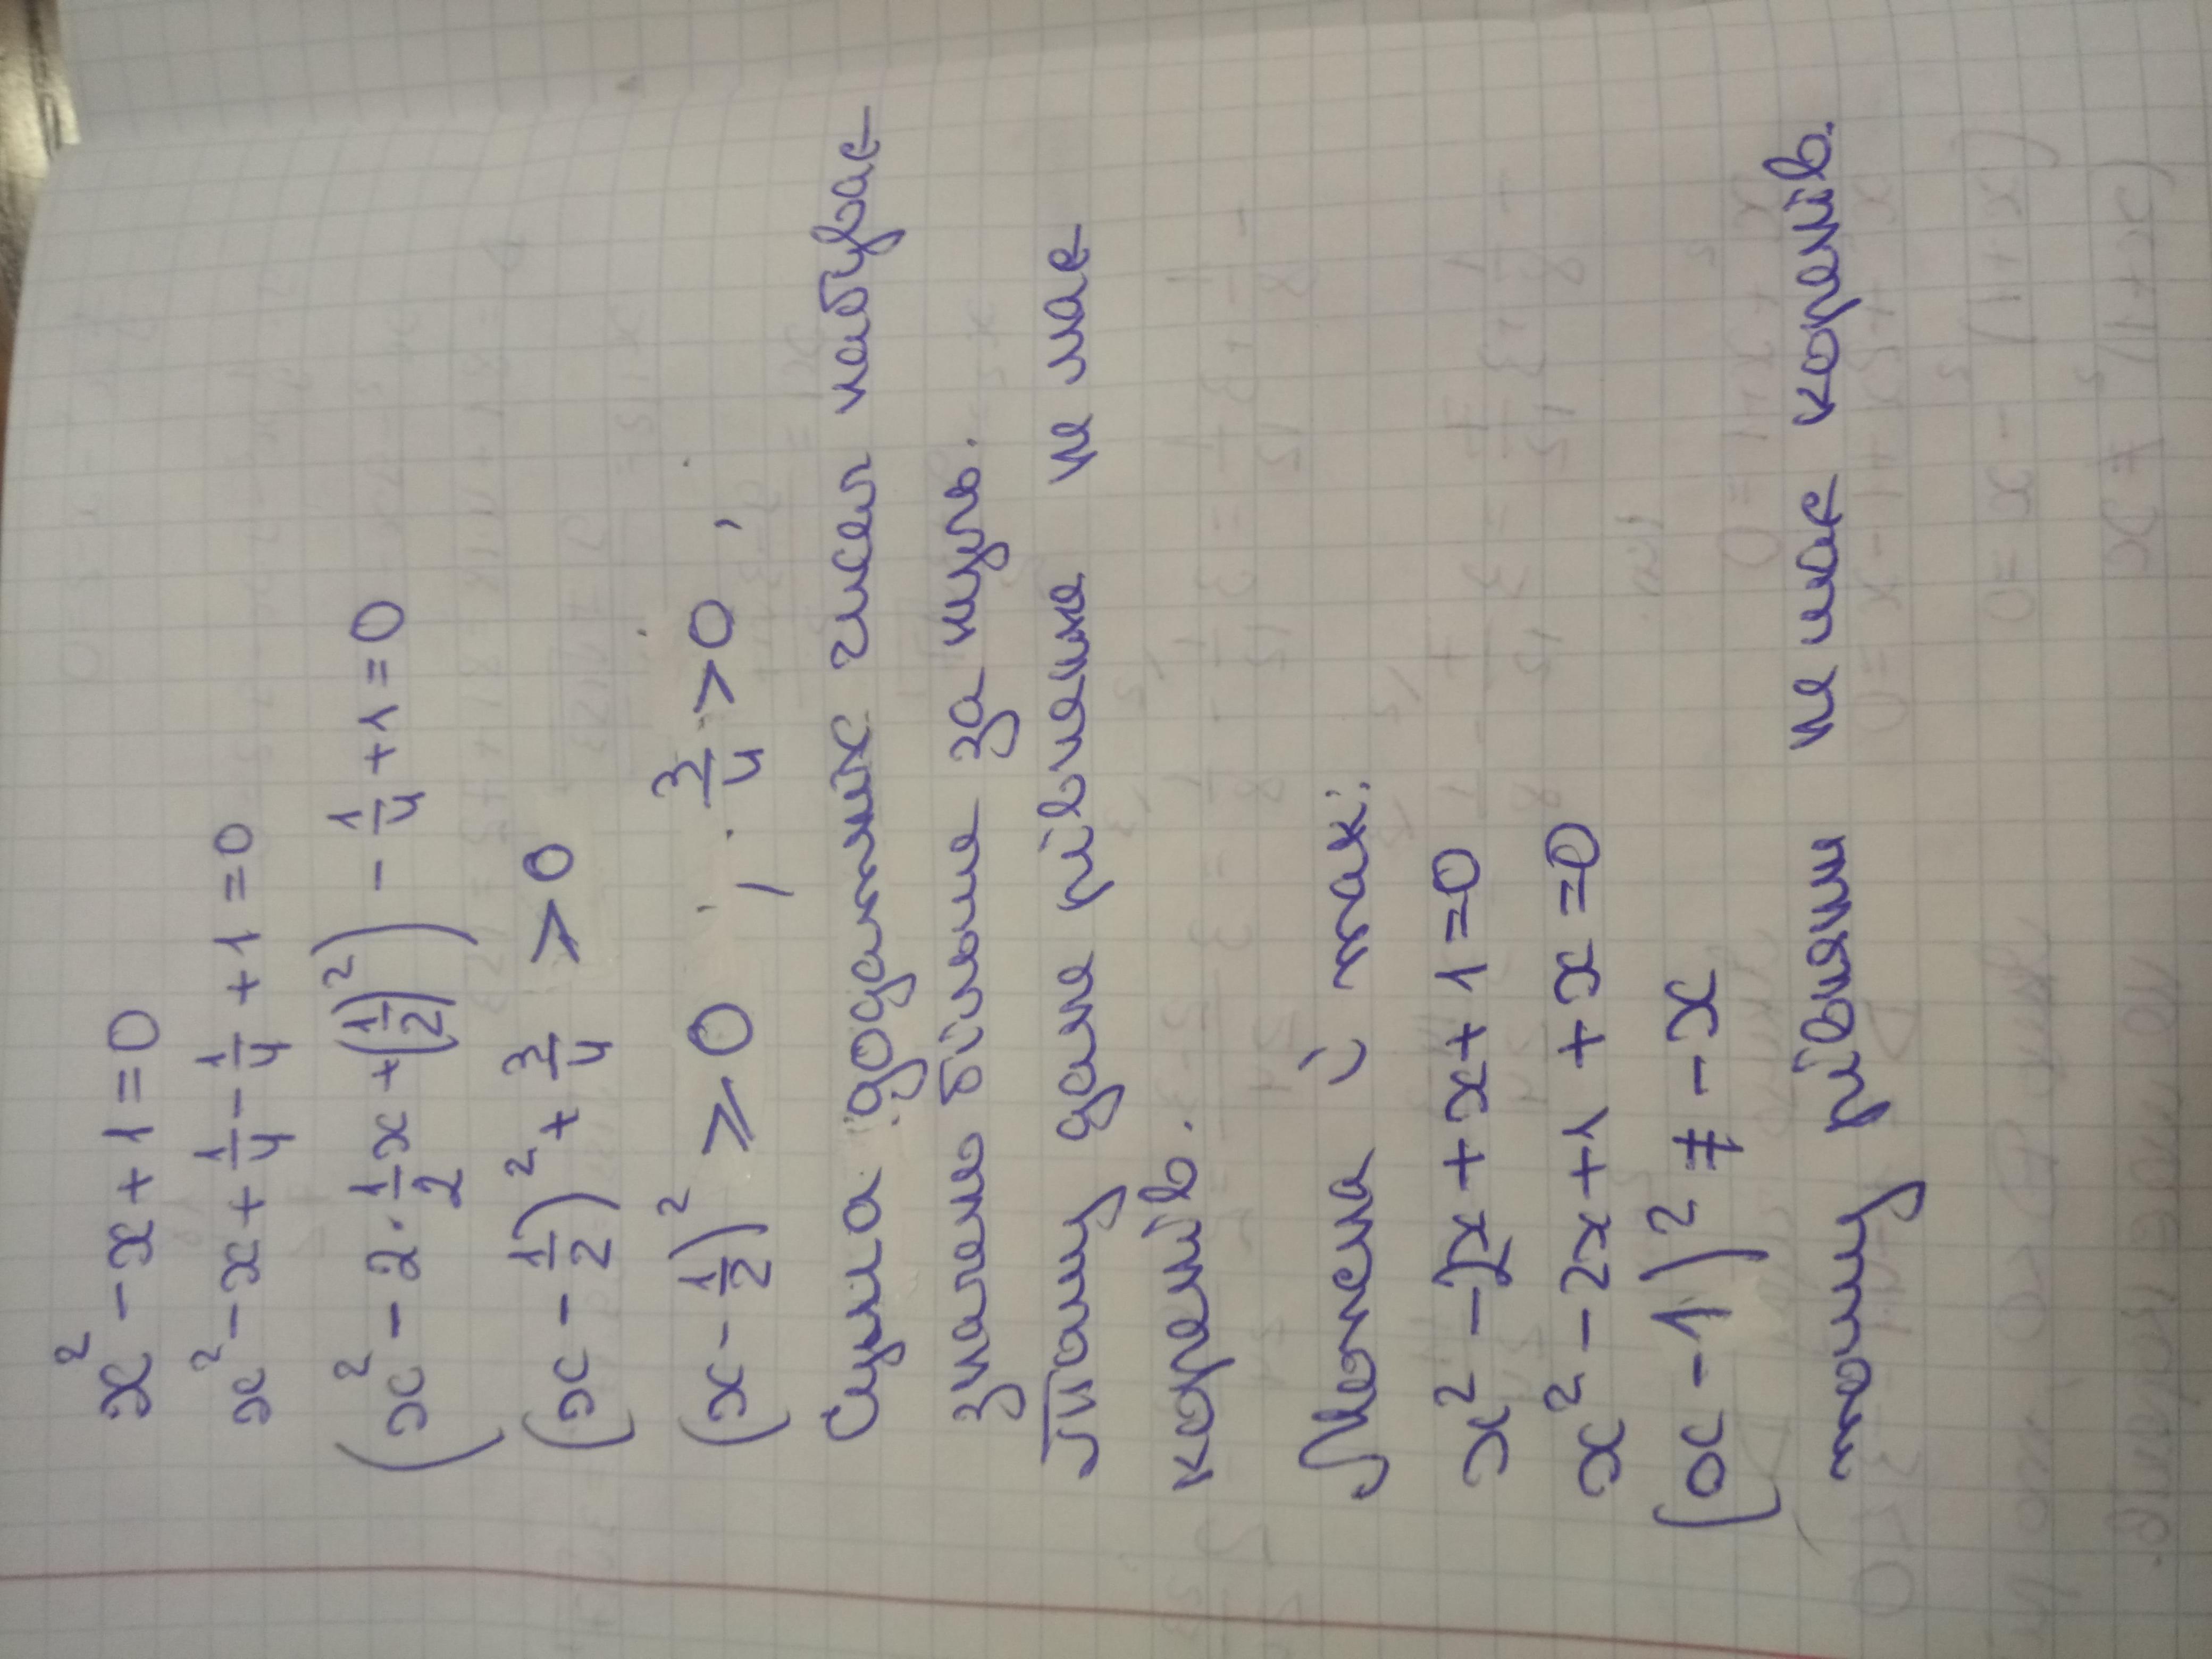 x² - x + 1 = 0
x² - x + 1/4 - 1/4 + 1 = 0
(x² - 2 · 1/2 x + (1/2)²) - 1/4 + 1 = 0
(x - 1/2)² + 3/4 > 0
(x - 1/2)² ⩾ 0 ; 3/4 > 0,
Сума додатних чисел набуває
значення більше за нуль.
Тому дане рівняння не має
коренів.
Можна і так:
x² - 2x + x + 1 = 0
x² - 2x + 1 + x = 0
(x - 1)² ≠ - x
тому рівняння не має коренів.